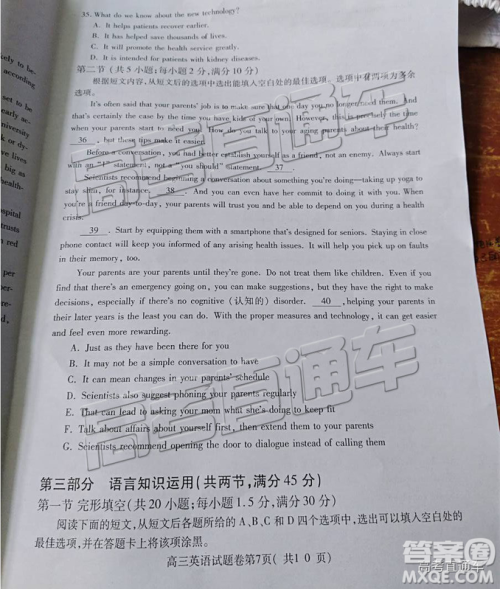 35. What do we know about the new technology?
A. It helps patients recover earlier.
B. It has helped save thousands of lives.
C. It will promote the health service greatly.
D. It is intended for patients with kidney diseases.
第二节 (共5小题;每小题2分,满分10分)
根据短文内容,从短文后的选项中选出能填入空白处的最佳选项。选项中有两项为多余
选项。
It's often said that your parents' job is to make sure that one day you no longer need them. And
that's certainly the case by the time you have kids of your own. However, this is precisely the time
when your parents start to need you. How do you talk to your aging parents about their health?
36 , but these tips make it easier.
Before a conversation, you had better establish yourself as a friend, not an enemy. Always start
with an "I" statement, not a "you should" statement. 37 .
Scientists recommend beginning a conversation about something you're doing—taking up yoga to
stay slim, for instance. 38 . And you can even have her commit to doing it with you. When
you're a friend day-to-day, your parents will trust you and be able to depend on you during a health
crisis.
39 . Start by equipping them with a smartphone that's designed for seniors. Staying in close
phone contact will keep you informed of any arising health issues. It will help you pick up on faults
in their memory, too.
Your parents are your parents until they're gone. Do not treat them like children. Even if you
find that there's an emergency going on, you can make suggestions, but they have the right to make
decisions, especially if there's no cognitive (认知的) disorder. 40 , helping your parents in
their later years is the least you can do. With the proper measures and technology, it can be easy and
feel even more rewarding.
A. Just as they were there for you
B. It may not be a simple conversation to have
C. It can mean changes in your parents' schedule
D. Scientists also suggest phoning your parents regularly
E. That can lead to asking your mom what she's doing to keep fit
F. Talk about affairs about yourself first, then extend them to your parents
G. Scientists recommend opening the door to dialogue instead of calling them
第三部分 语言知识运用(共两节,满分45分)
第一节 完形填空(共20小题;每小题1.5分,满分30分)
阅读下面的短文,从短文后各题所给的A、B、C和D四个选项中,选出可以填入空白处的
最佳选项,并在答题卡上将该项涂黑。
高三英语试题卷第7页(共10页)
高考直通车
高考直通车
高考直通车
答案圈
MXQE.COM
to be.
according
early
university
dark
big as
hospital
trusts
red
per